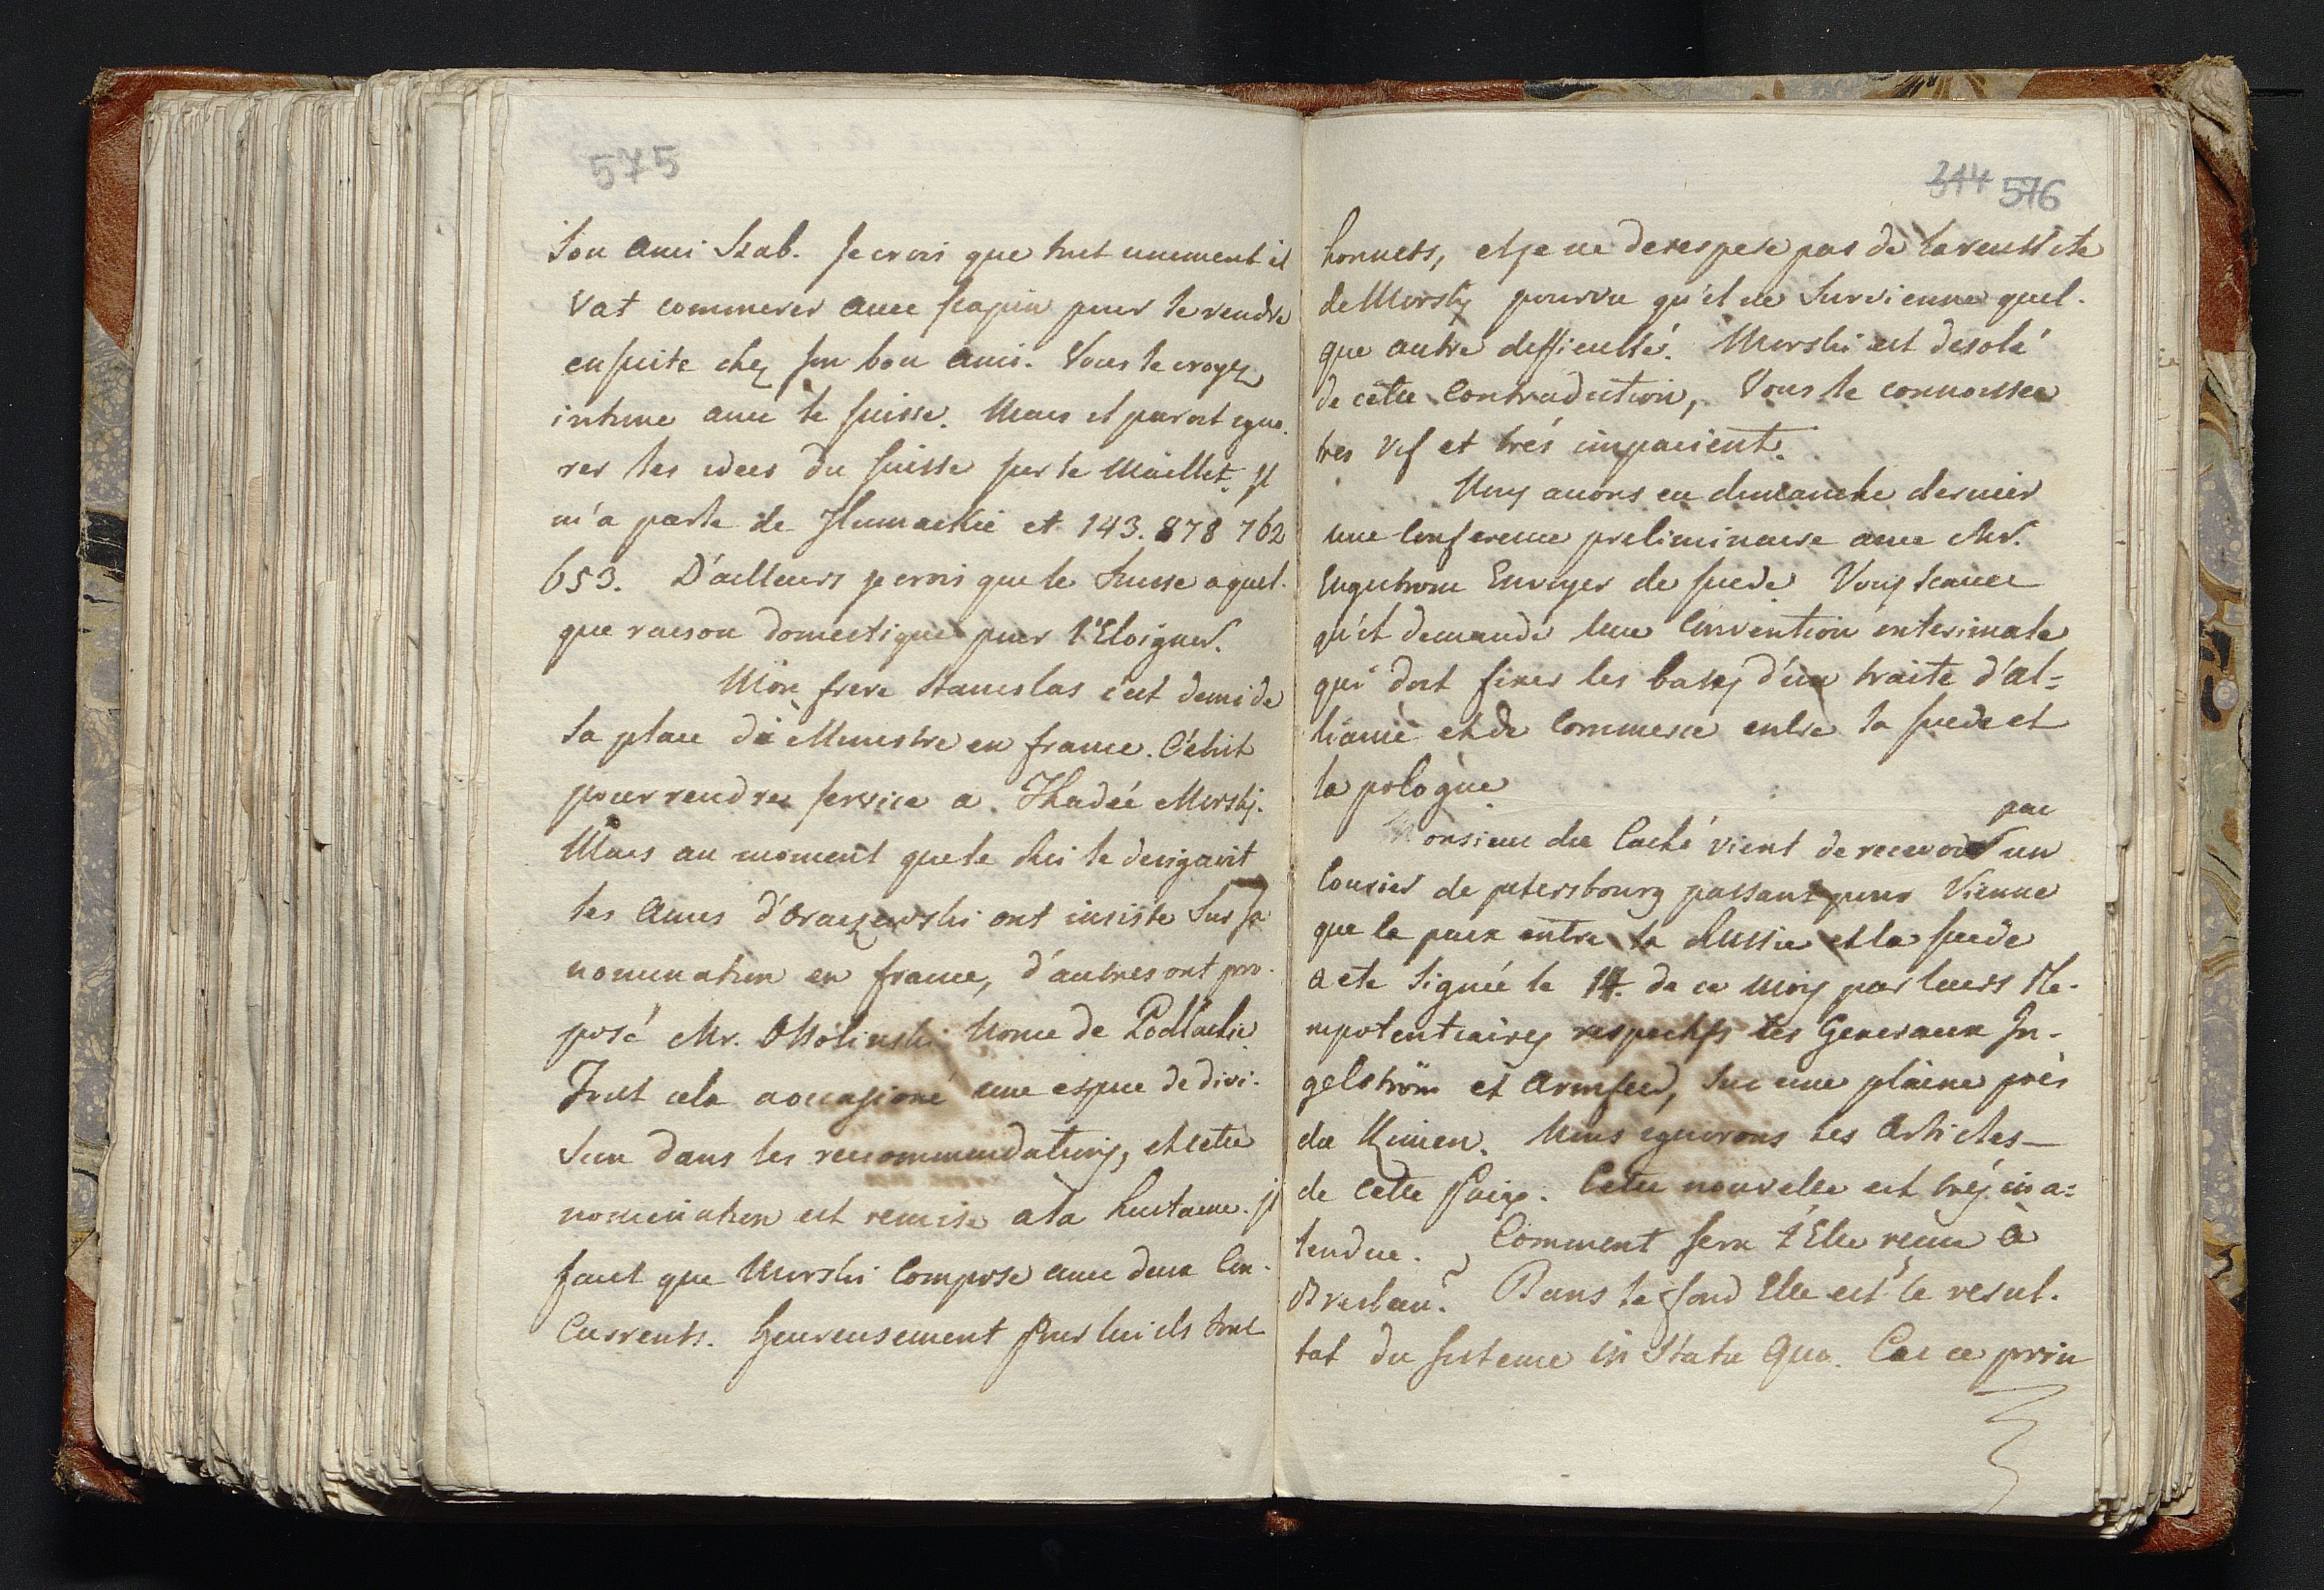 575
Son Ami Stab. Je crois que tout uniment il
vat commerer avec scapin pour se rendre
ensuite chez son bon ami. Vous le croyez
intime avec le suisse. Mais il paroit igno-
rer les idees du suisse sur le Maillet. Jl
m'a parle de Humaekie et 143. 878 762
653. D'ailleurs je crois que le Suisse a quel-
que raison domestique pour l'Eloigner.
Mon frere Stanislas s'est demi de
la place de Ministre en france. C'étoit
pour rendre service a Thadée Morski.
Mais au moment que le Roi le designoit
les Amis d'Oraczewski ont insiste Sur sa
nomination en france, d'autres ont pro-
posé Mr. Ossolinski Nonce de Podlachie
Tout cela a occasioné une espece de divi-
sion dans les recommendations, et cette
nomination est remise a la huitaine. Jl
faut que Morski Compose avec deux Con-
Currents. Heureusement Pour lui ils sont
244 576
honnets, et je ne desespere pas de la reussite
de Morski pourvu qu'il ne Survienne quel-
que autre difficulté. Morski est desolé
de cette Contradiction, Vous le connoissez
tres vif et trés impacient.
Nous avons eu dimanche dernier
une Conference preliminaire avec Mr.
Engestrom Envoyer de suede Vous scavez
qu'il demande Une Convention interimale
qui doit fixer les bases d'un traité d'al=
liance et de Commerce entre la suede et
la pologne
Monsieur du Caché vient de recevoir par un
Courier de petersbourg passant pour Vienne
que la paix entre la Russie et la suede
a ete Signée le 14. de ce Mois par leurs Ple-
nipotentiaires respectifs les Generaux In-
gelström et Armfeld, Sur une plaine près
du Kimen. Nous ignorons les Articles
de Cette Paix. Cette nouvelle est tres ina=
tendue. Comment sera t'Elle recue à
Breslau? Dans le fond Elle est le resul-
tat du sisteme in Statu Quo. Car ce prin